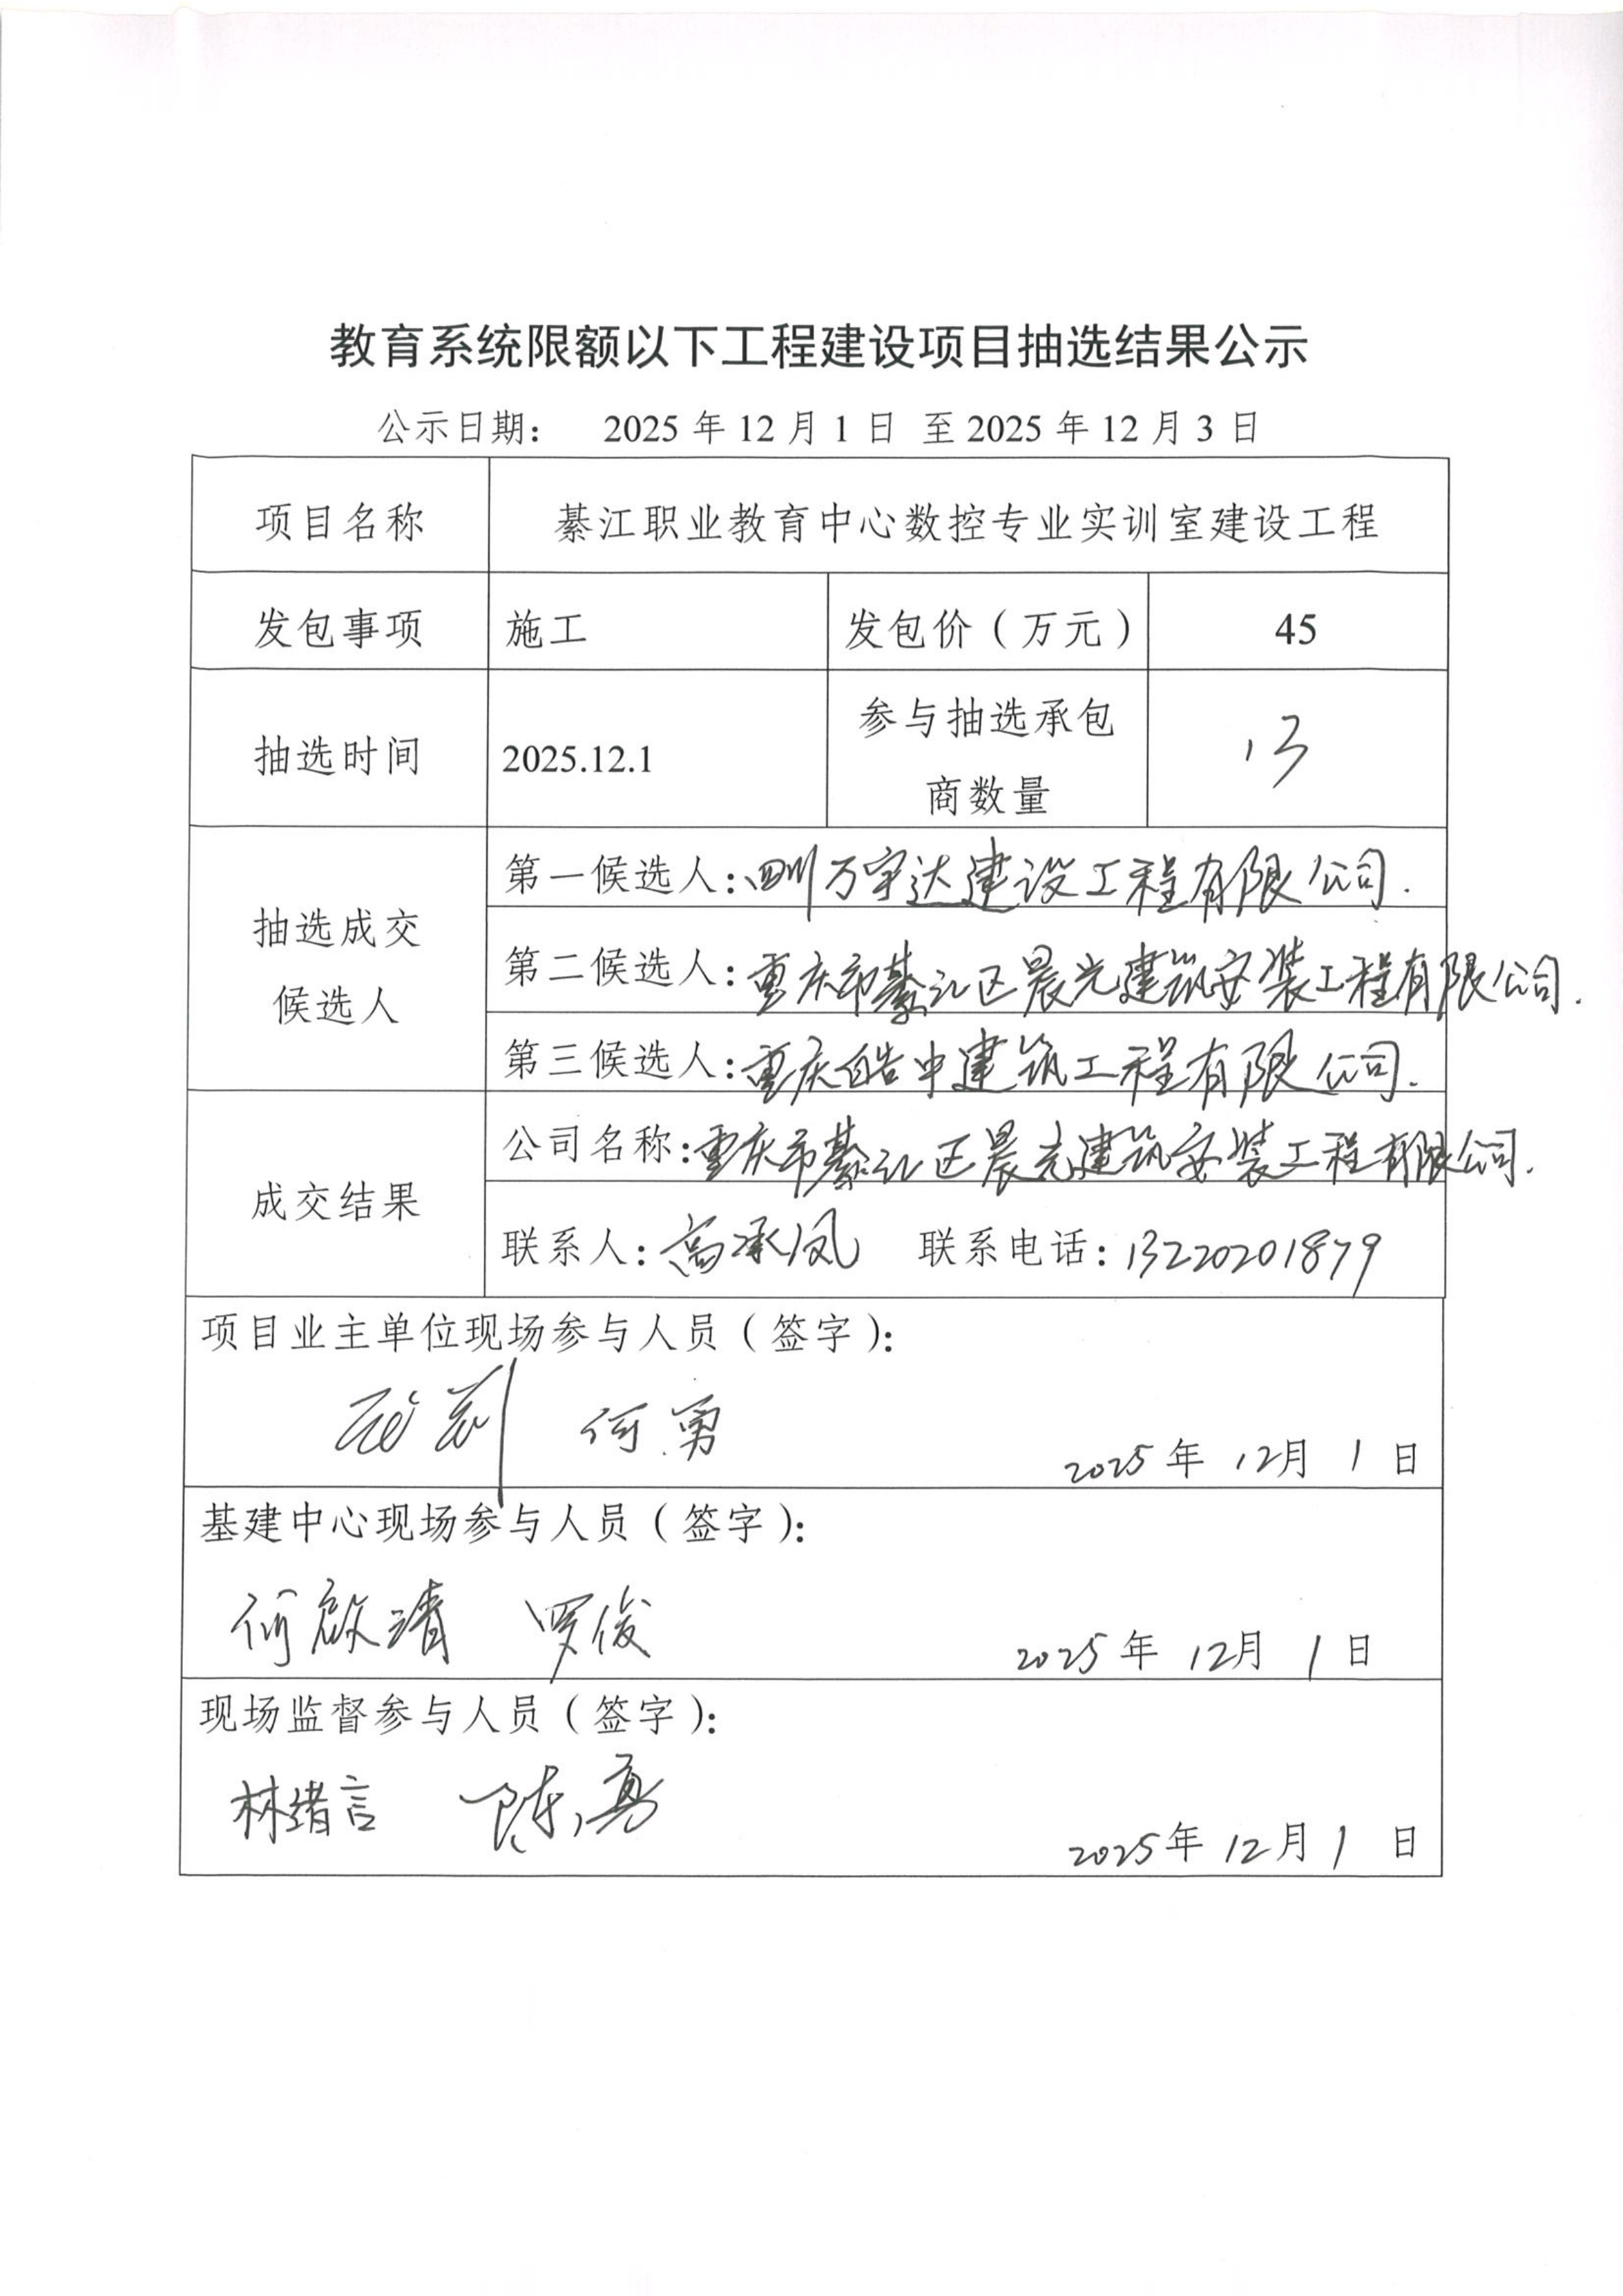 教育系统限额以下工程建设项目抽选结果公示
公示日期： 2025 年 12 月 1 日 至 2025 年 12 月 3 日
项目名称 綦江职业教育中心数控专业实训室建设工程
发包事项 施工 发包价（万元） 45
抽选时间 2025.12.1 参与抽选承包商数量 13
抽选成交候选人
第一候选人：四川万宇达建设工程有限公司.
第二候选人：重庆市綦江区晨光建筑安装工程有限公司.
第三候选人：重庆皓中建筑工程有限公司.
成交结果
公司名称：重庆市綦江区晨光建筑安装工程有限公司.
联系人：高承凤 联系电话：13220201879
项目业主单位现场参与人员（签字）：
何勇
2025年 12月 1 日
基建中心现场参与人员（签字）：
何啟清 罗俊
2025年 12月 1 日
现场监督参与人员（签字）：
林绪言 陈勇
2025年 12月 1 日